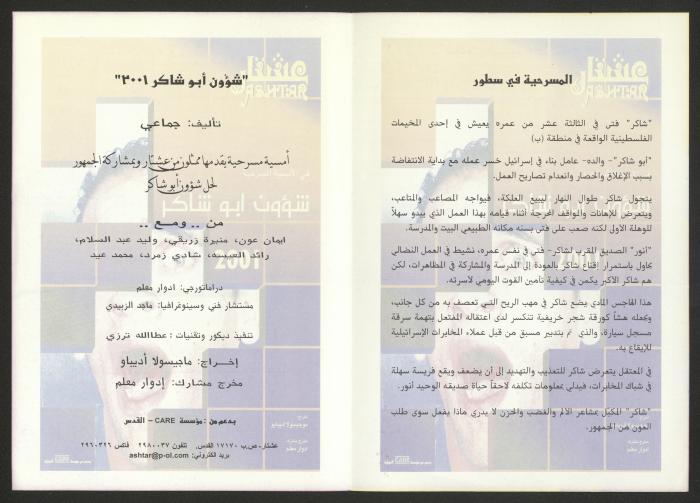 المسرحية في سطور
"شاكر" فتى في الثالثة عشر من عمره يعيش في إحدى المخيمات
الفلسطينية الواقعة في منطقة (ب)
"أبو شاكر"- والده- عامل بناء في إسرائيل خسر عمله مع بداية الانتفاضة
بسبب الإغلاق والحصار وانعدام تصاريح العمل.
يتجول شاكر طوال النهار ليبيع العلكة، فيواجه المصاعب والمتاعب،
ويتعرض للإهانات والمواقف المحرجة أثناء قيامه بهذا العمل الذي يبدو سهلاً
للوهلة الأولى لكنه صعب على فتى بسنه مكانه الطبيعي البيت والمدرسة.
"أنور" الصديق المقرب لشاكر- فتى في نفس عمره، نشيط في العمل النضالي
يحاول باستمرار إقناع شاكر بالعودة إلى المدرسة والمشاركة في المظاهرات، لكن
هم شاكر الأكبر يكمن في كيفية تأمين القوت اليومي لأسرته.
هذا الهاجس المادي يضع شاكر في مهب الريح التي تعصف به من كل جانب،
ويجعله هشاً كورقة شجر خريفية تنكسر لدى اعتقاله المفتعل بتهمة سرقة
مسجل سيارة، والذي تم بتدبير مسبق من قبل عملاء المخابرات الإسرائيلية
للإيقاع به.
في المعتقل يتعرض شاكر للتعذيب والتهديد إلى أن يضعف ويقع فريسة سهلة
في شباك المخابرات، فيدلي بمعلومات تكلفه لاحقاً حياة صديقه الوحيد أنور.
"شاكر" المكبل بمشاعر الألم والغضب والحزن لا يدري ماذا يفعل سوى طلب
العون من الجمهور.
عشتار
ASHTAR
"شؤون أبو شاكر ٢٠٠١"
تأليف: جماعي
أمسية مسرحية يقدمها ممثلون من عشتار وبمشاركة الجمهور
لحل شؤون أبو شاكر
من .. ومع ..
ايمان عون، منيرة زريقي، وليد عبد السلام،
رائد العيسه، شادي زمرد، محمد عيد
دراماتورجي: ادوار معلم
مستشار فني وسينوغرافيا: ماجد الزبيدي
تنفيذ ديكور وتقنيات: عطاالله ترزي
إخراج: ماجيسولا أديباو
مخرج مشارك: إدوار معلم
بدعم من: مؤسسة CARE – القدس
عشتار، ص.ب ١٧١٧٠ القدس، تلفون ٢٩٨٠٠٣٧ فاكس ٢٩٦٠٣٢٦
بريد الكتروني: ashtar@p-ol.com
عشتار
ASHTAR
شؤون ابو شاكر
2001